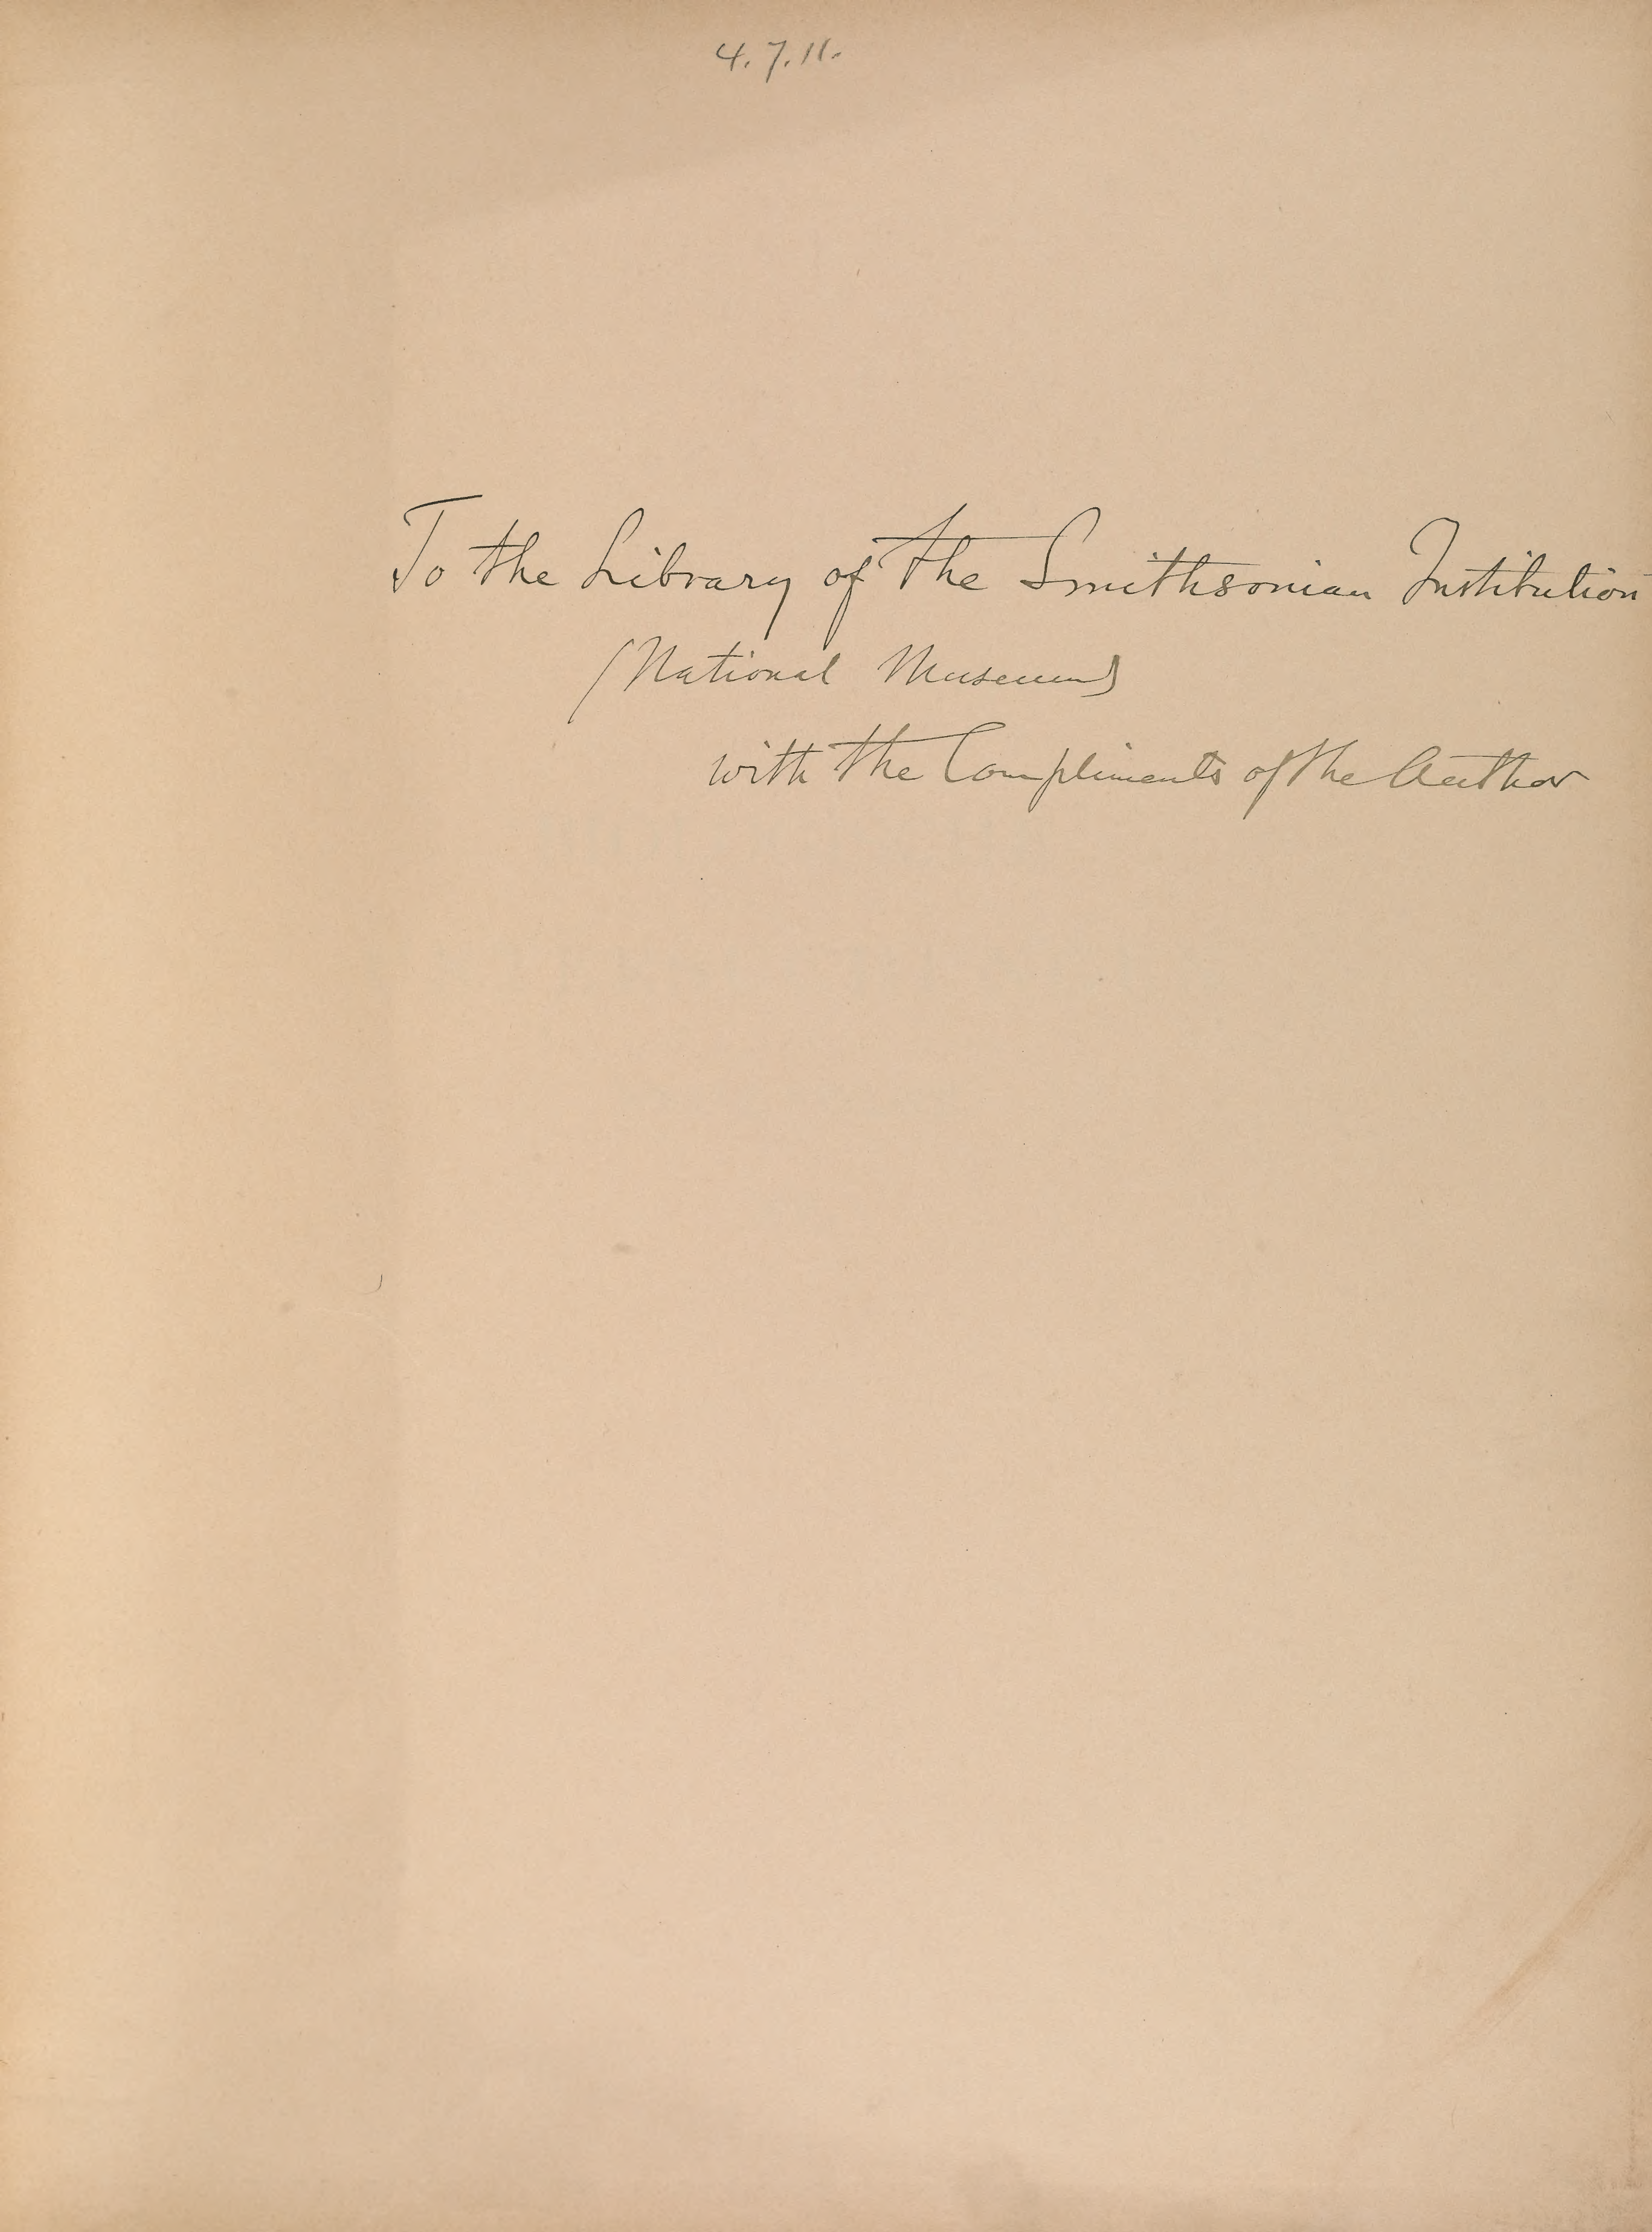 4. 7. 11.
To the Library of the Smithsonian Institution
(National Museum)
with the Compliments of the Author